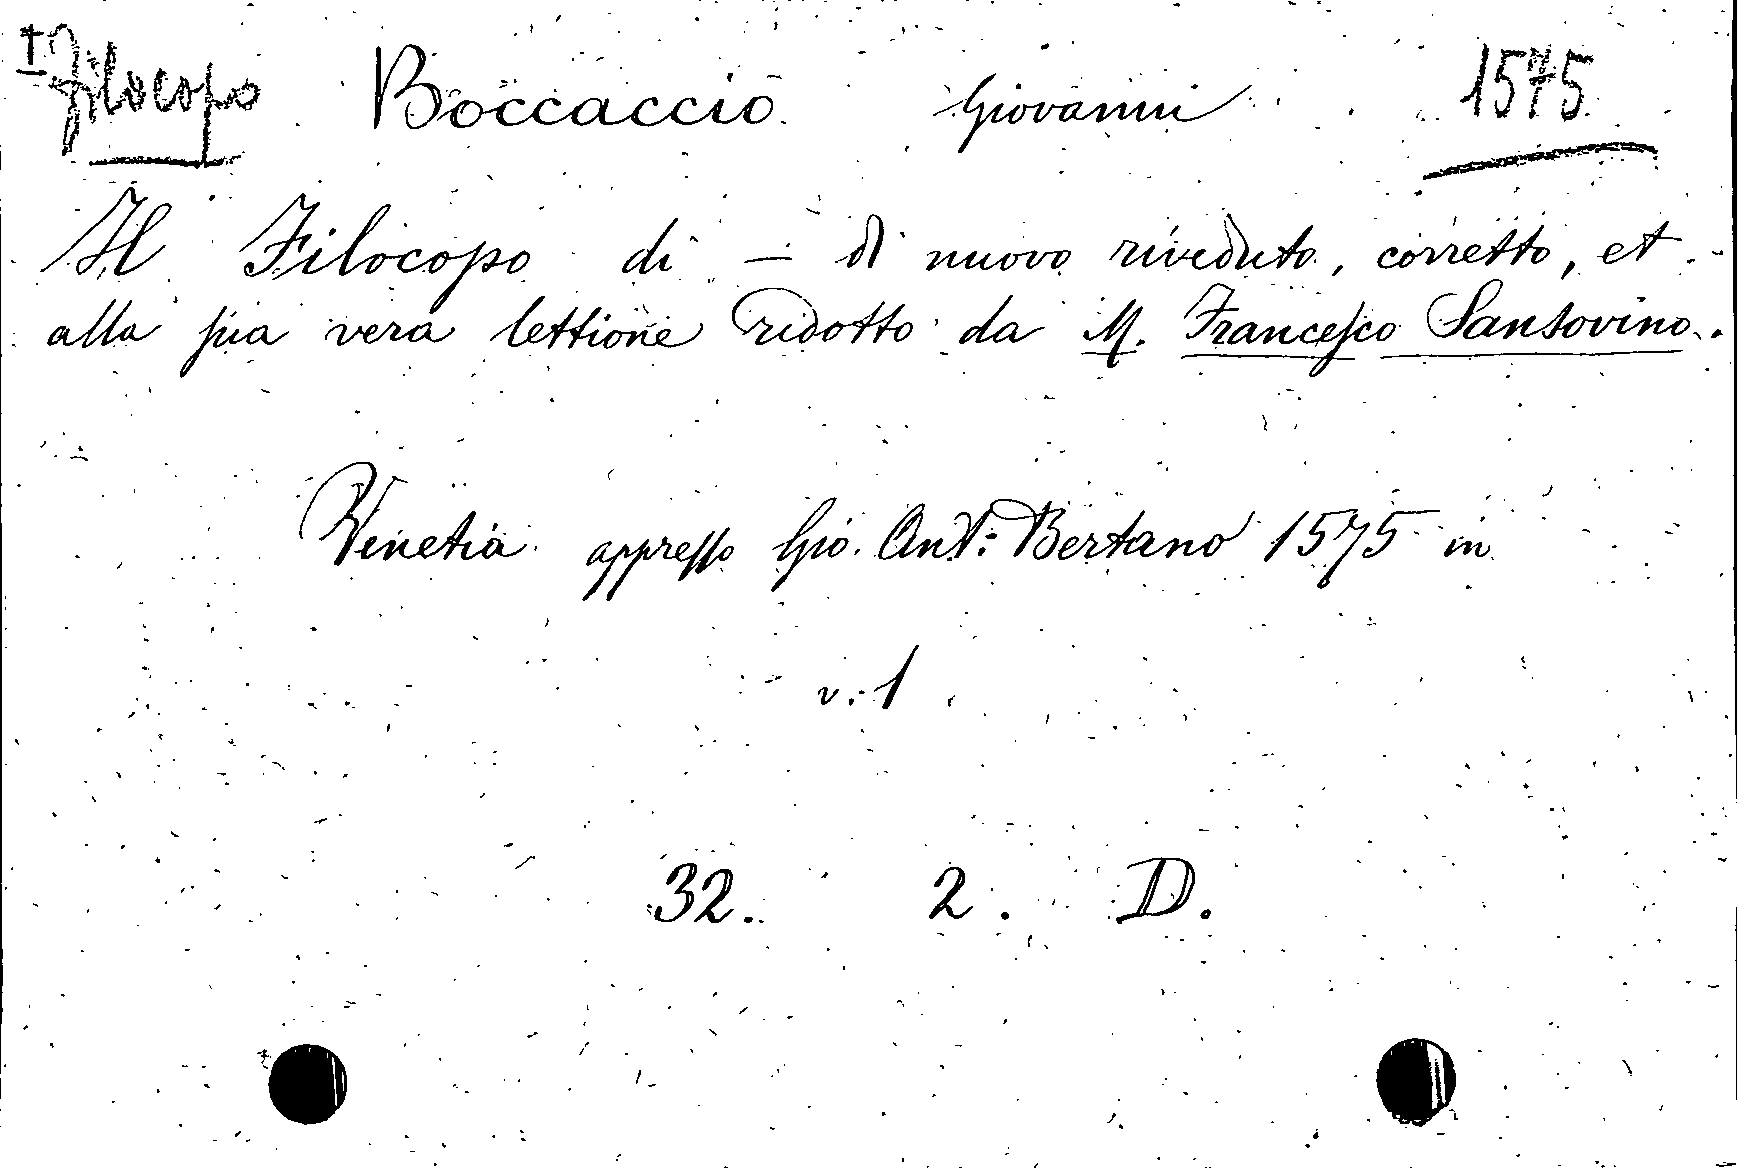 † Filocopo Boccaccio Giovanni 1575
Il Filocopo di – di nuovo riveduto, corretto, et
alla ſua vera lettione ridotto da M. Franceſco Sansovino.
Venetia appreſſo Gio. Ant: Bertano 1575 in
v. 1
32. 2. D.